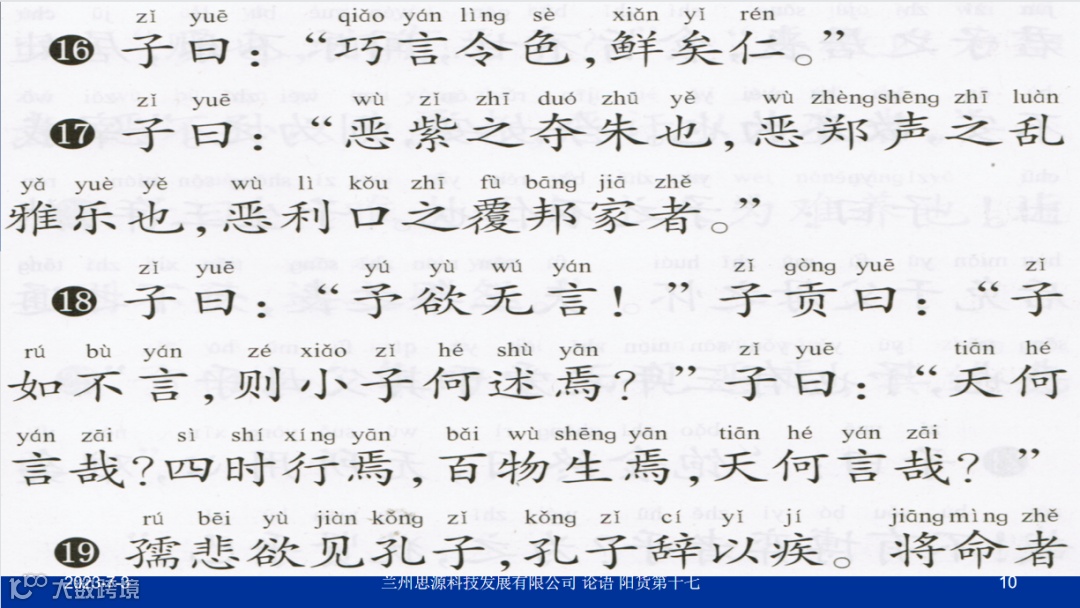 zǐ yuē qiǎo yán lìng sè xiǎn yǐ rén
16 子曰：“巧言令色，鲜矣仁。”
zǐ yuē wù zǐ zhī duó zhū yě wù zhèng shēng zhī luàn
17 子曰：“恶紫之夺朱也，恶郑声之乱
yǎ yuè yě wù lì kǒu zhī fù bāng jiā zhě
雅乐也，恶利口之覆邦家者。”
zǐ yuē yú yù wú yán zǐ gòng yuē zǐ
18 子曰：“予欲无言！”子贡曰：“子
rú bù yán zé xiǎo zǐ hé shù yān zǐ yuē tiān hé
如不言，则小子何述焉？”子曰：“天何
yán zāi sì shí xíng yān bǎi wù shēng yān tiān hé yán zāi
言哉？四时行焉，百物生焉，天何言哉？”
rú bēi yù jiàn kǒng zǐ kǒng zǐ cí yǐ jí jiāng mìng zhě
19 孺悲欲见孔子，孔子辞以疾。将命者
2023-7-9 兰州思源科技发展有限公司 论语 阳货第十七 10
大数跨境